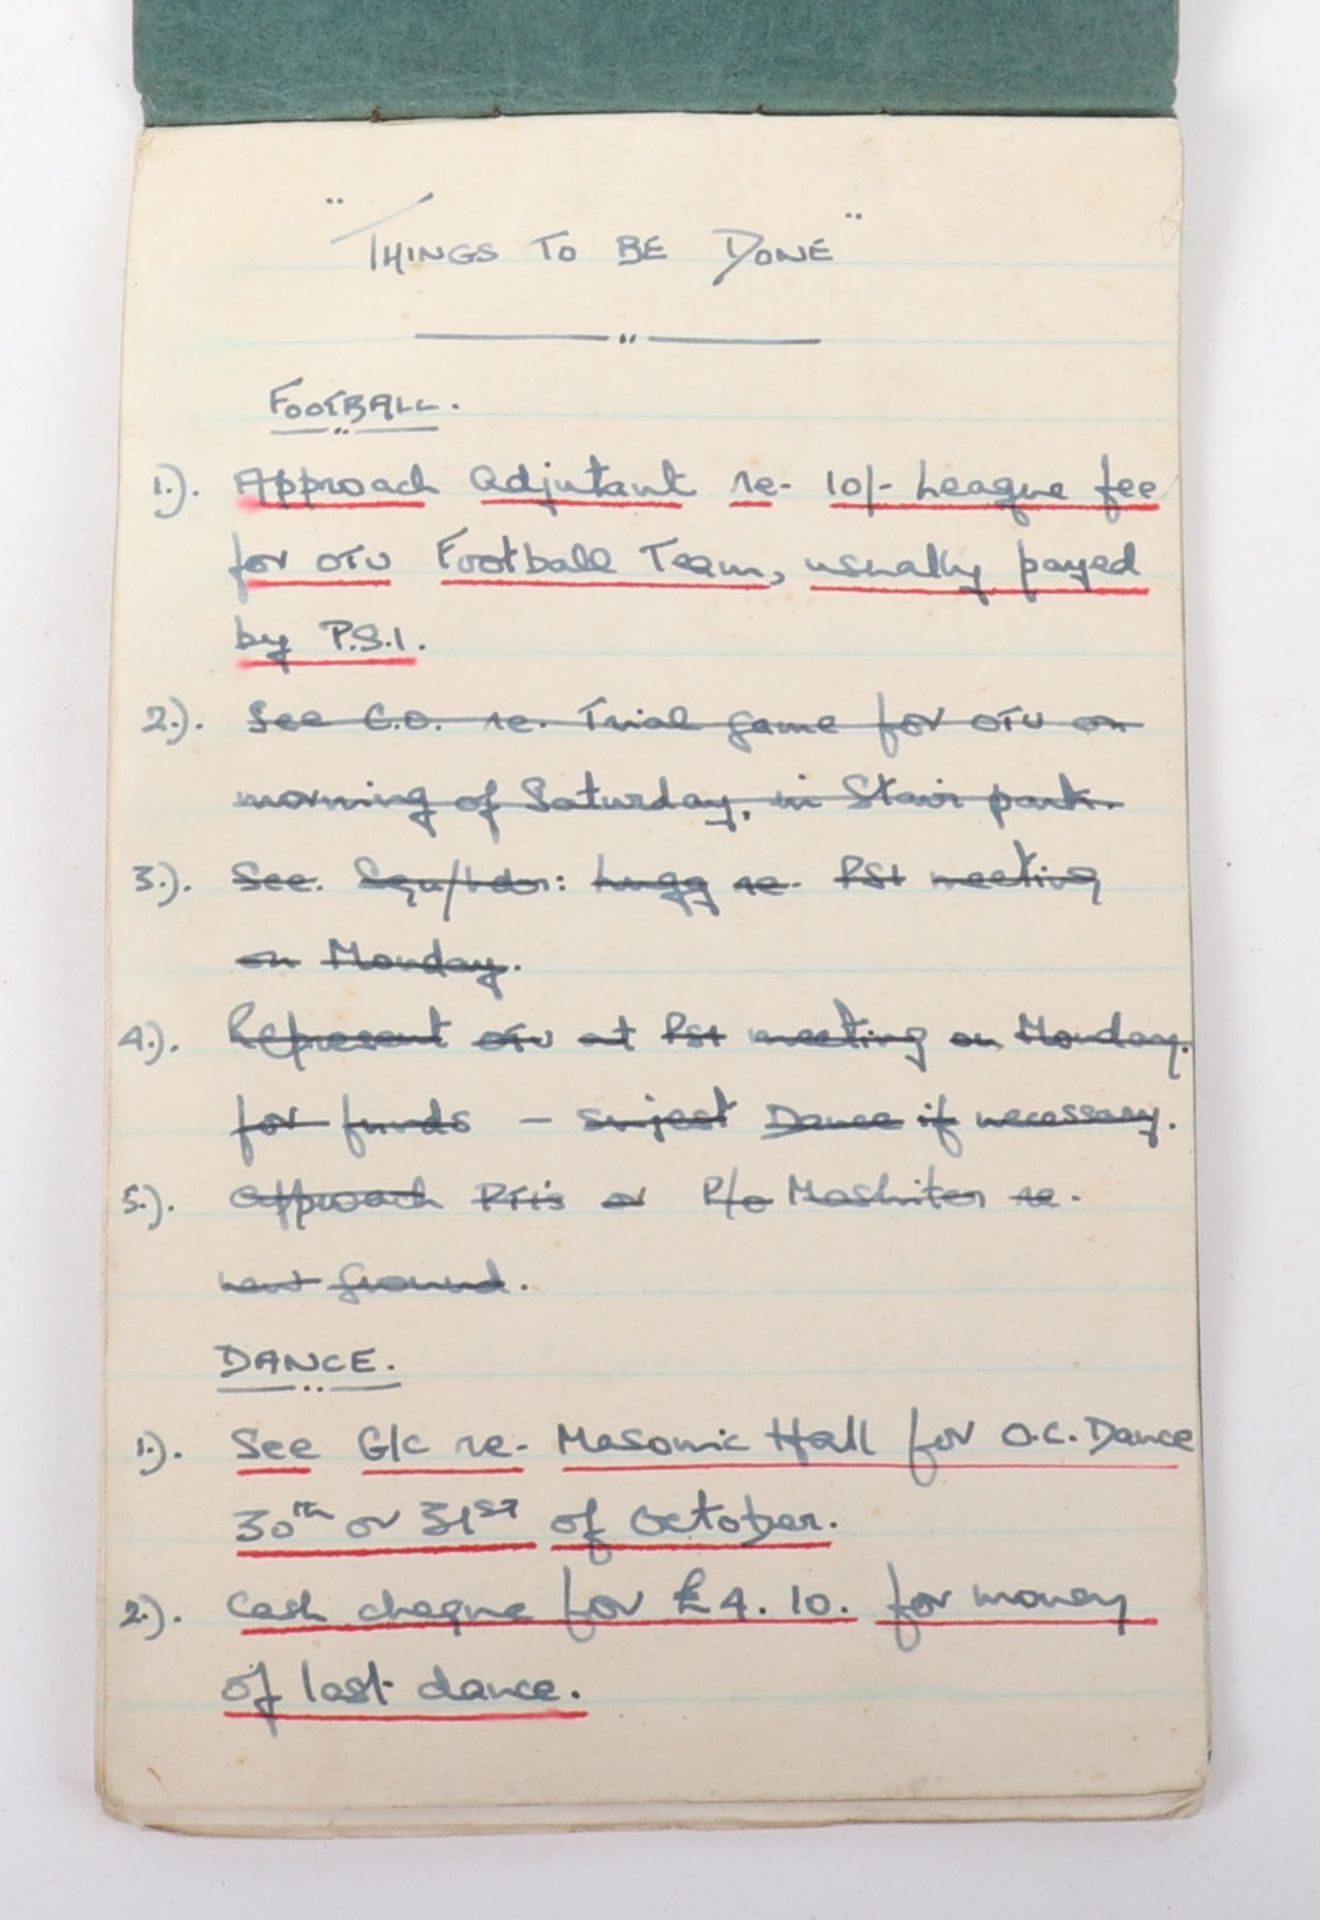 "THINGS TO BE DONE"
FOOTBALL.
1.). Approach Adjutant re- 10/- League fee
for OTU Football Team, usually payed
by P.S.I.
2.). See C.O. re. Trial game for OTU on
morning of Saturday, in Stair park.
3.). See. Squ/Ldr: Lugg re. PSI meeting
on Monday.
4.). Represent OTU at PSI meeting on Monday.
for funds - sujest Dance if necessary.
5.). Approach PTI's or P/O Mashiter re.
ground.
DANCE.
1.). See G/C re- Masonic Hall for O.C. Dance
30th or 31ST of October.
2.). Cash cheque for £4. 10. for money
of last dance.